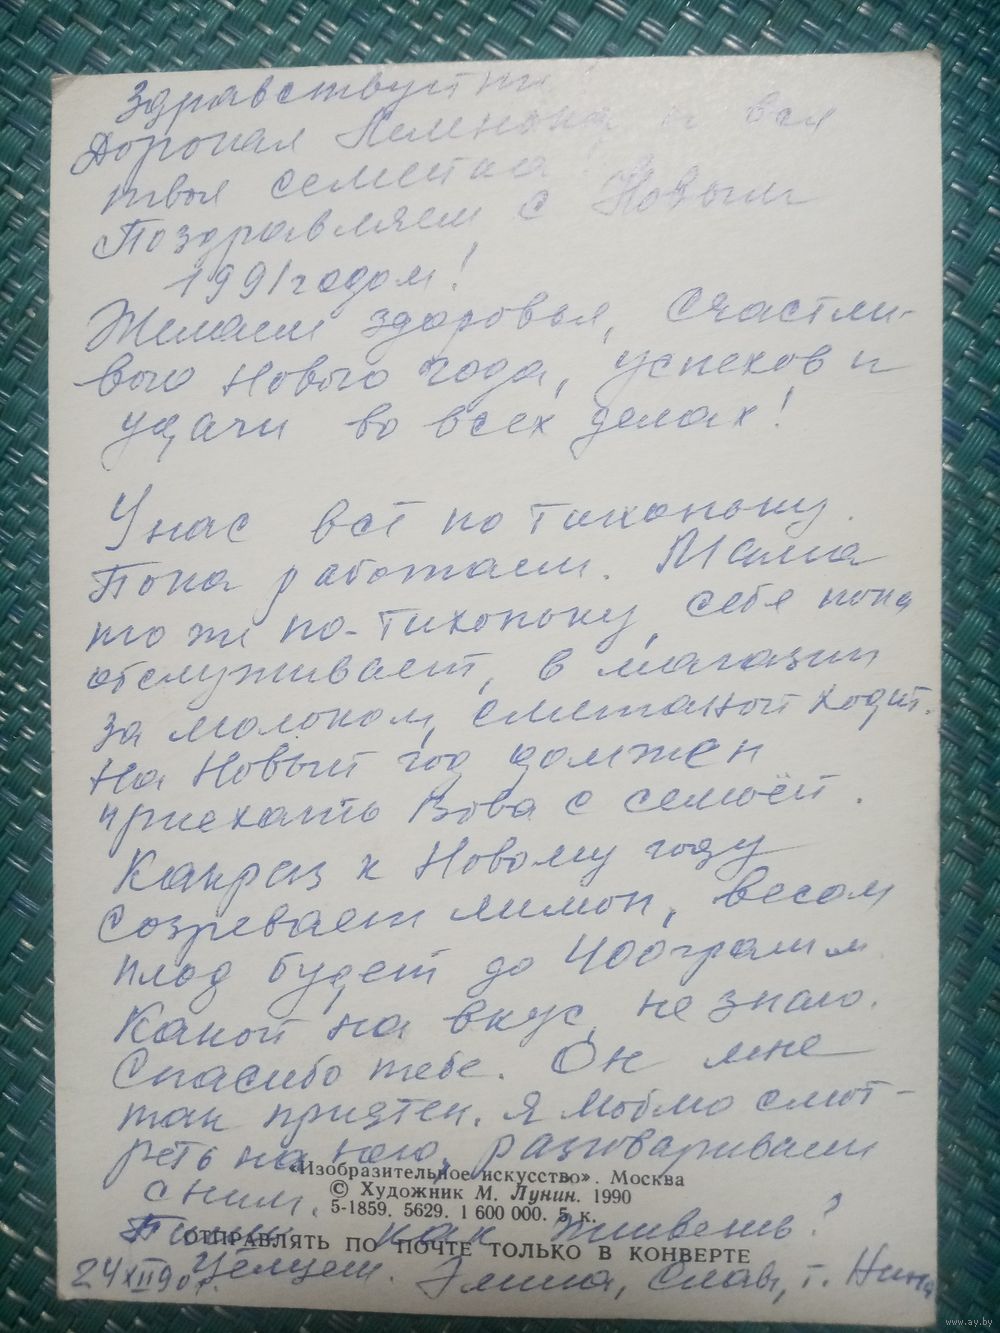 Здравствуйте
Дорогая Леночка и вся
твоя семейка
Поздравляем с Новым
1991 годом!
Желаем здоровья, счастли-
вого Нового года, успехов и
удачи во всех делах!
У нас всё потихоньку.
Пока работаем. Мама
то же по-тихоньку, себя пока
обслуживает, в магазин
за молоком, сметаной ходит.
На Новый год должен
приехать Вова с семьёй.
Какраз к Новому году
созревает лимон, весом
плод будет до 400 грамм
Какой на вкус, не знаю.
Спасибо тебе. Он мне
так приятен. Я люблю смот-
реть на него, разговариваем
«Изобразительное искусство». Москва
с ним.
© Художник М. Лунин. 1990
5-1859. 5629. 1 600 000. 5 к.
Пиши как живешь?
ОТПРАВЛЯТЬ ПО ПОЧТЕ ТОЛЬКО В КОНВЕРТЕ
24 XII 90 г. Целуем. Эмма, Слава, т. Нина
www.ay.by